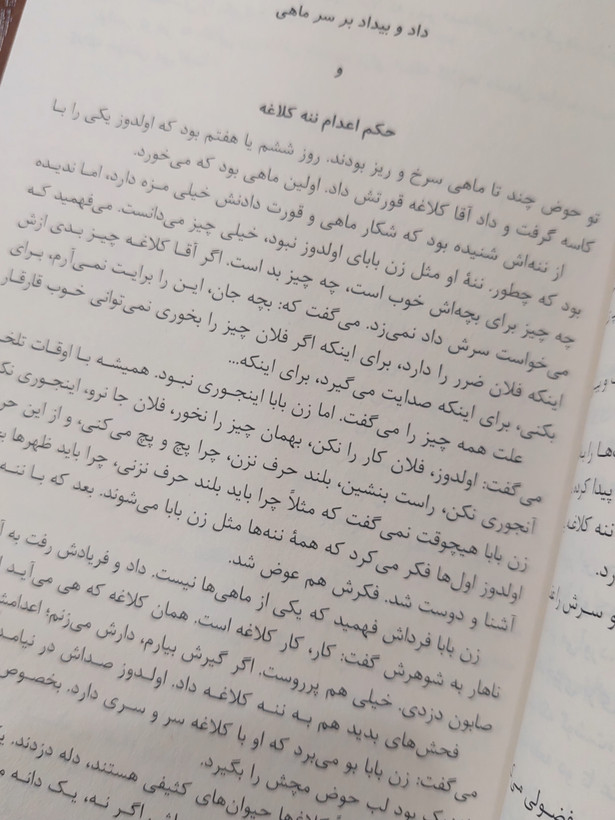 داد و بیداد بر سر ماهی
و
حکم اعدام ننه کلاغه
تو حوض چند تا ماهی سرخ و ریز بودند. روز ششم یا هفتم بود که اولدوز یکی را بـا
کاسه گرفت و داد آقا کلاغه قورتش داد. اولین ماهی بود که می‌خورد.
از ننه‌اش شنیده بود که شکار ماهی و قورت دادنش خیلی مـزه دارد، امـا ندیـده
بود که چطور. ننهٔ او مثل زن بابای اولدوز نبود، خیلی چیز می‌دانست. می‌فهمید کـه
چه چیز برای بچه‌اش خوب است، چه چیز بد است. اگر آقـا کلاغـه چیـز بـدی ازش
می‌خواست سرش داد نمی‌زد. می‌گفت که: بچه جان، ایـن را برایـت نمـی‌آرم، بـرای
اینکه فلان ضرر را دارد، برای اینکه اگر فلان چیز را بخوری نمی‌توانی خـوب قارقـار
بکنی، برای اینکه صدایت می‌گیرد، برای اینکه...
علت همه چیز را می‌گفت. اما زن بابا اینجـوری نبـود. همیشـه بـا اوقـات تلخـ
می‌گفت: اولدوز، فلان کار را نکن، بهمان چیز را نخور، فلان جا نرو، اینجـوری نکـ
آنجوری نکن، راست بنشین، بلند حرف نزن، چرا پچ و پچ می‌کنی، و از این حر
زن بابا هیچوقت نمی‌گفت که مثلاً چرا باید بلند حرف نزنی، چرا باید ظهرها
اولدوز اول‌ها فکر می‌کرد که همهٔ ننه‌ها مثل زن بابا می‌شوند. بعد که بـا ننـه
آشنا و دوست شد. فکرش هم عوض شد.
زن بابا فرداش فهمید که یکی از ماهی‌ها نیست. داد و فریادش رفت به
ناهار به شوهرش گفت: کار، کار کلاغه است. همان کلاغه که هی می‌آیـد
صابون دزدی. خیلی هم پرروست. اگر گیرش بیارم، دارش می‌زنم؛ اعدامش
فحش‌های بدید هم بـه ننـه کلاغـه داد. اولـدوز صـداش در نیامـد
می‌گفت: زن بابا بو می‌برد که او با کلاغه سر و سری دارد. بخصوص
بود لب حوض مچش را بگیرد.
کلاغ‌ها حیوان‌های کثیفی هستند، دله دزدند.
اگـر نـه، یـک دانـه
پیدا کردند
ننه کلاغه
و سـرش را
فضـولی